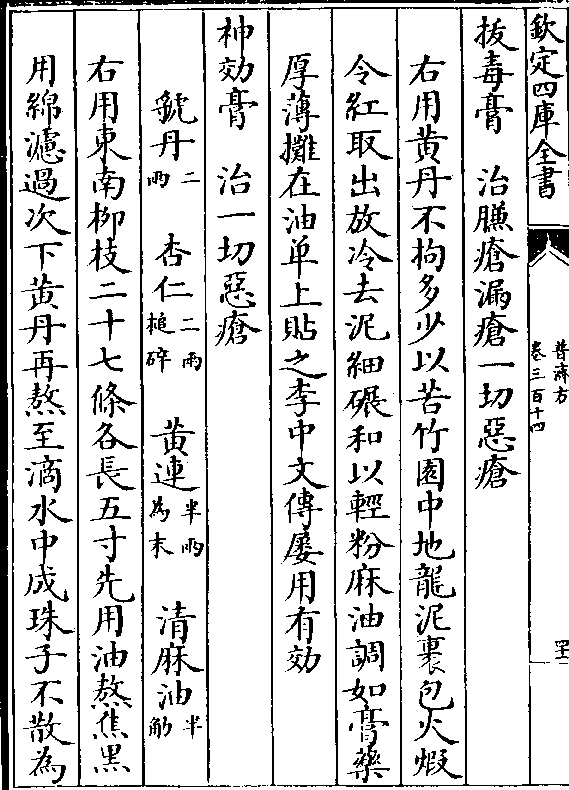 欽定四庫全書
普濟方
卷三百十四
拔毒膏　治臁瘡漏瘡一切惡瘡
右用黄丹不拘多少以苦竹園中地龍泥裹包火煅
令紅取出放冷去泥細碾和以輕粉麻油調如膏藥
厚薄攤在油单上貼之李中文傳屡用有効
神効膏　治一切惡瘡
虢丹二兩　杏仁二兩槌碎　黄連半兩為末　清麻油半觔
右用東南柳枝二十七條各長五寸先用油熬焦黒
用綿濾過次下黄丹再熬至滴水中成珠子不散為